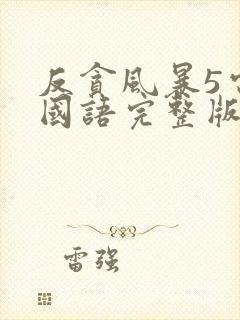 反貪風暴5
國語完整版
雷强